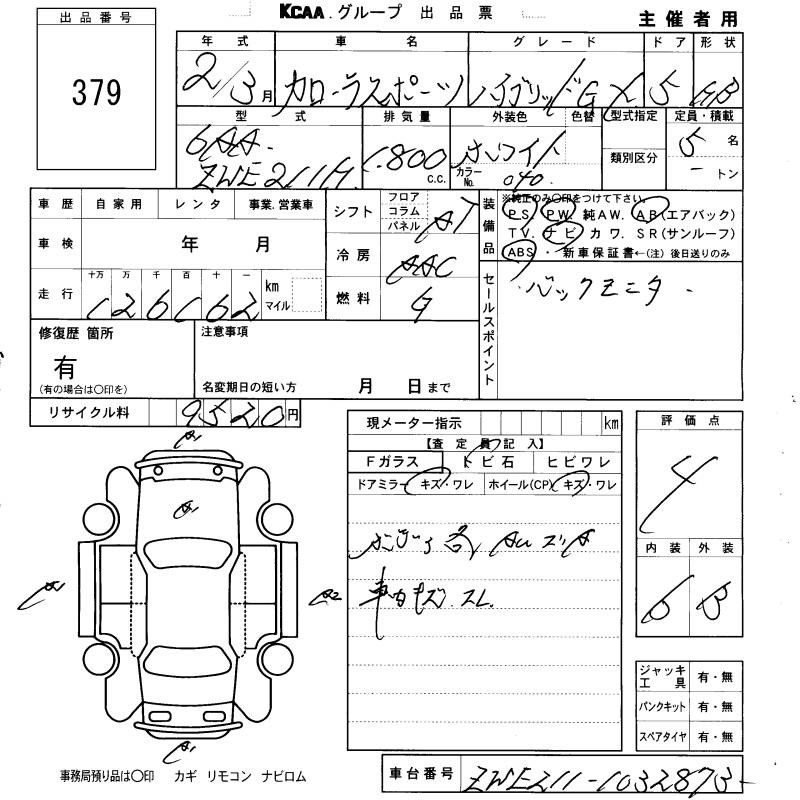 KCAA グループ 出品票
主催者用
出品番号
379
年式 車名 グレード ドア 形状
2/3月 カローラスポーツ ハイブリッドG X 5 HB
型式 排気量 外装色 色替 型式指定 定員・積載
6AA- 1.800 c.c. ホワイト 5名
ZWE211H カラーNo. 040 類別区分 トン
車歴 自家用 レンタ 事業.営業車
シフト フロア コラム パネル AT
装備品 ※純正のみ○印をつけて下さい。
PS PW 純AW. AB(エアバック)
TV. ナビ カワ. SR(サンルーフ)
ABS ・新車保証書←(注)後日送りのみ
車検 年 月
冷房 AAC
走行 十万 万 千 百 十 一
126162 km マイル
燃料 G
セールスポイント
バックモニター
修復歴 箇所 注意事項
有
(有の場合は○印を) 名変期日の短い方 月 日まで
リサイクル料 9520円
現メーター指示 km
【査定員記入】
Fガラス トビ石 ヒビワレ
ドアミラー キズ・ワレ ホイール(CP) キズ・ワレ
各
車内キズ. スレ.
評価点
4
内装 外装
6 B
A1
A1
A1
A2
A1
ジャッキ工具 有・無
パンクキット 有・無
スペアタイヤ 有・無
事務局預り品は○印 カギ リモコン ナビロム
車台番号 ZWE211-1032873-